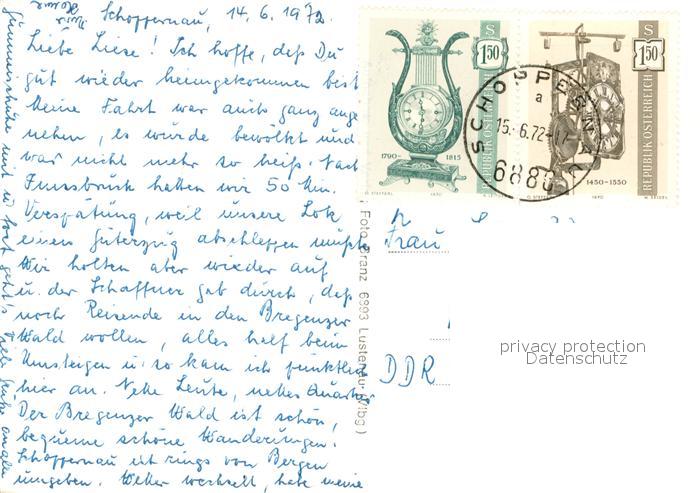 Schoppernau, 14.6.1972
Liebe Liese! Ich hoffe, daß Du
gut wieder heimgekommen bist
Meine Fahrt war auch ganz ange
nehm, es wurde bewölkt und
war nicht mehr so heiß. Nach
Innsbruck hatten wir 50 Min.
Verspätung, weil unsere Lok
einen Güterzug abschleppen mußte
Wir holten aber wieder auf
u. der Schaffner gab durch, daß
noch Reisende in den Bregenzer
Wald wollen, alles half beim
Umsteigen u. so kam ich pünktlich
hier an. Nette Leute, nettes Quartier
Der Bregenzer Wald ist schön,
bequeme schöne Wanderungen.
Schoppernau ist rings von Bergen
umgeben. Wetter wechselt, habe meine
S 1.50
1790-1815
REPUBLIK ÖSTERREICH
1970
S 1.50
1450-1550
REPUBLIK ÖSTERREICH
1970
SCHOPPERNAU
a
15.-6.72-17
6886
Foto Branz 6893 Lustenau (Vlbg)
Frau
DDR
privacy protection
Datenschutz